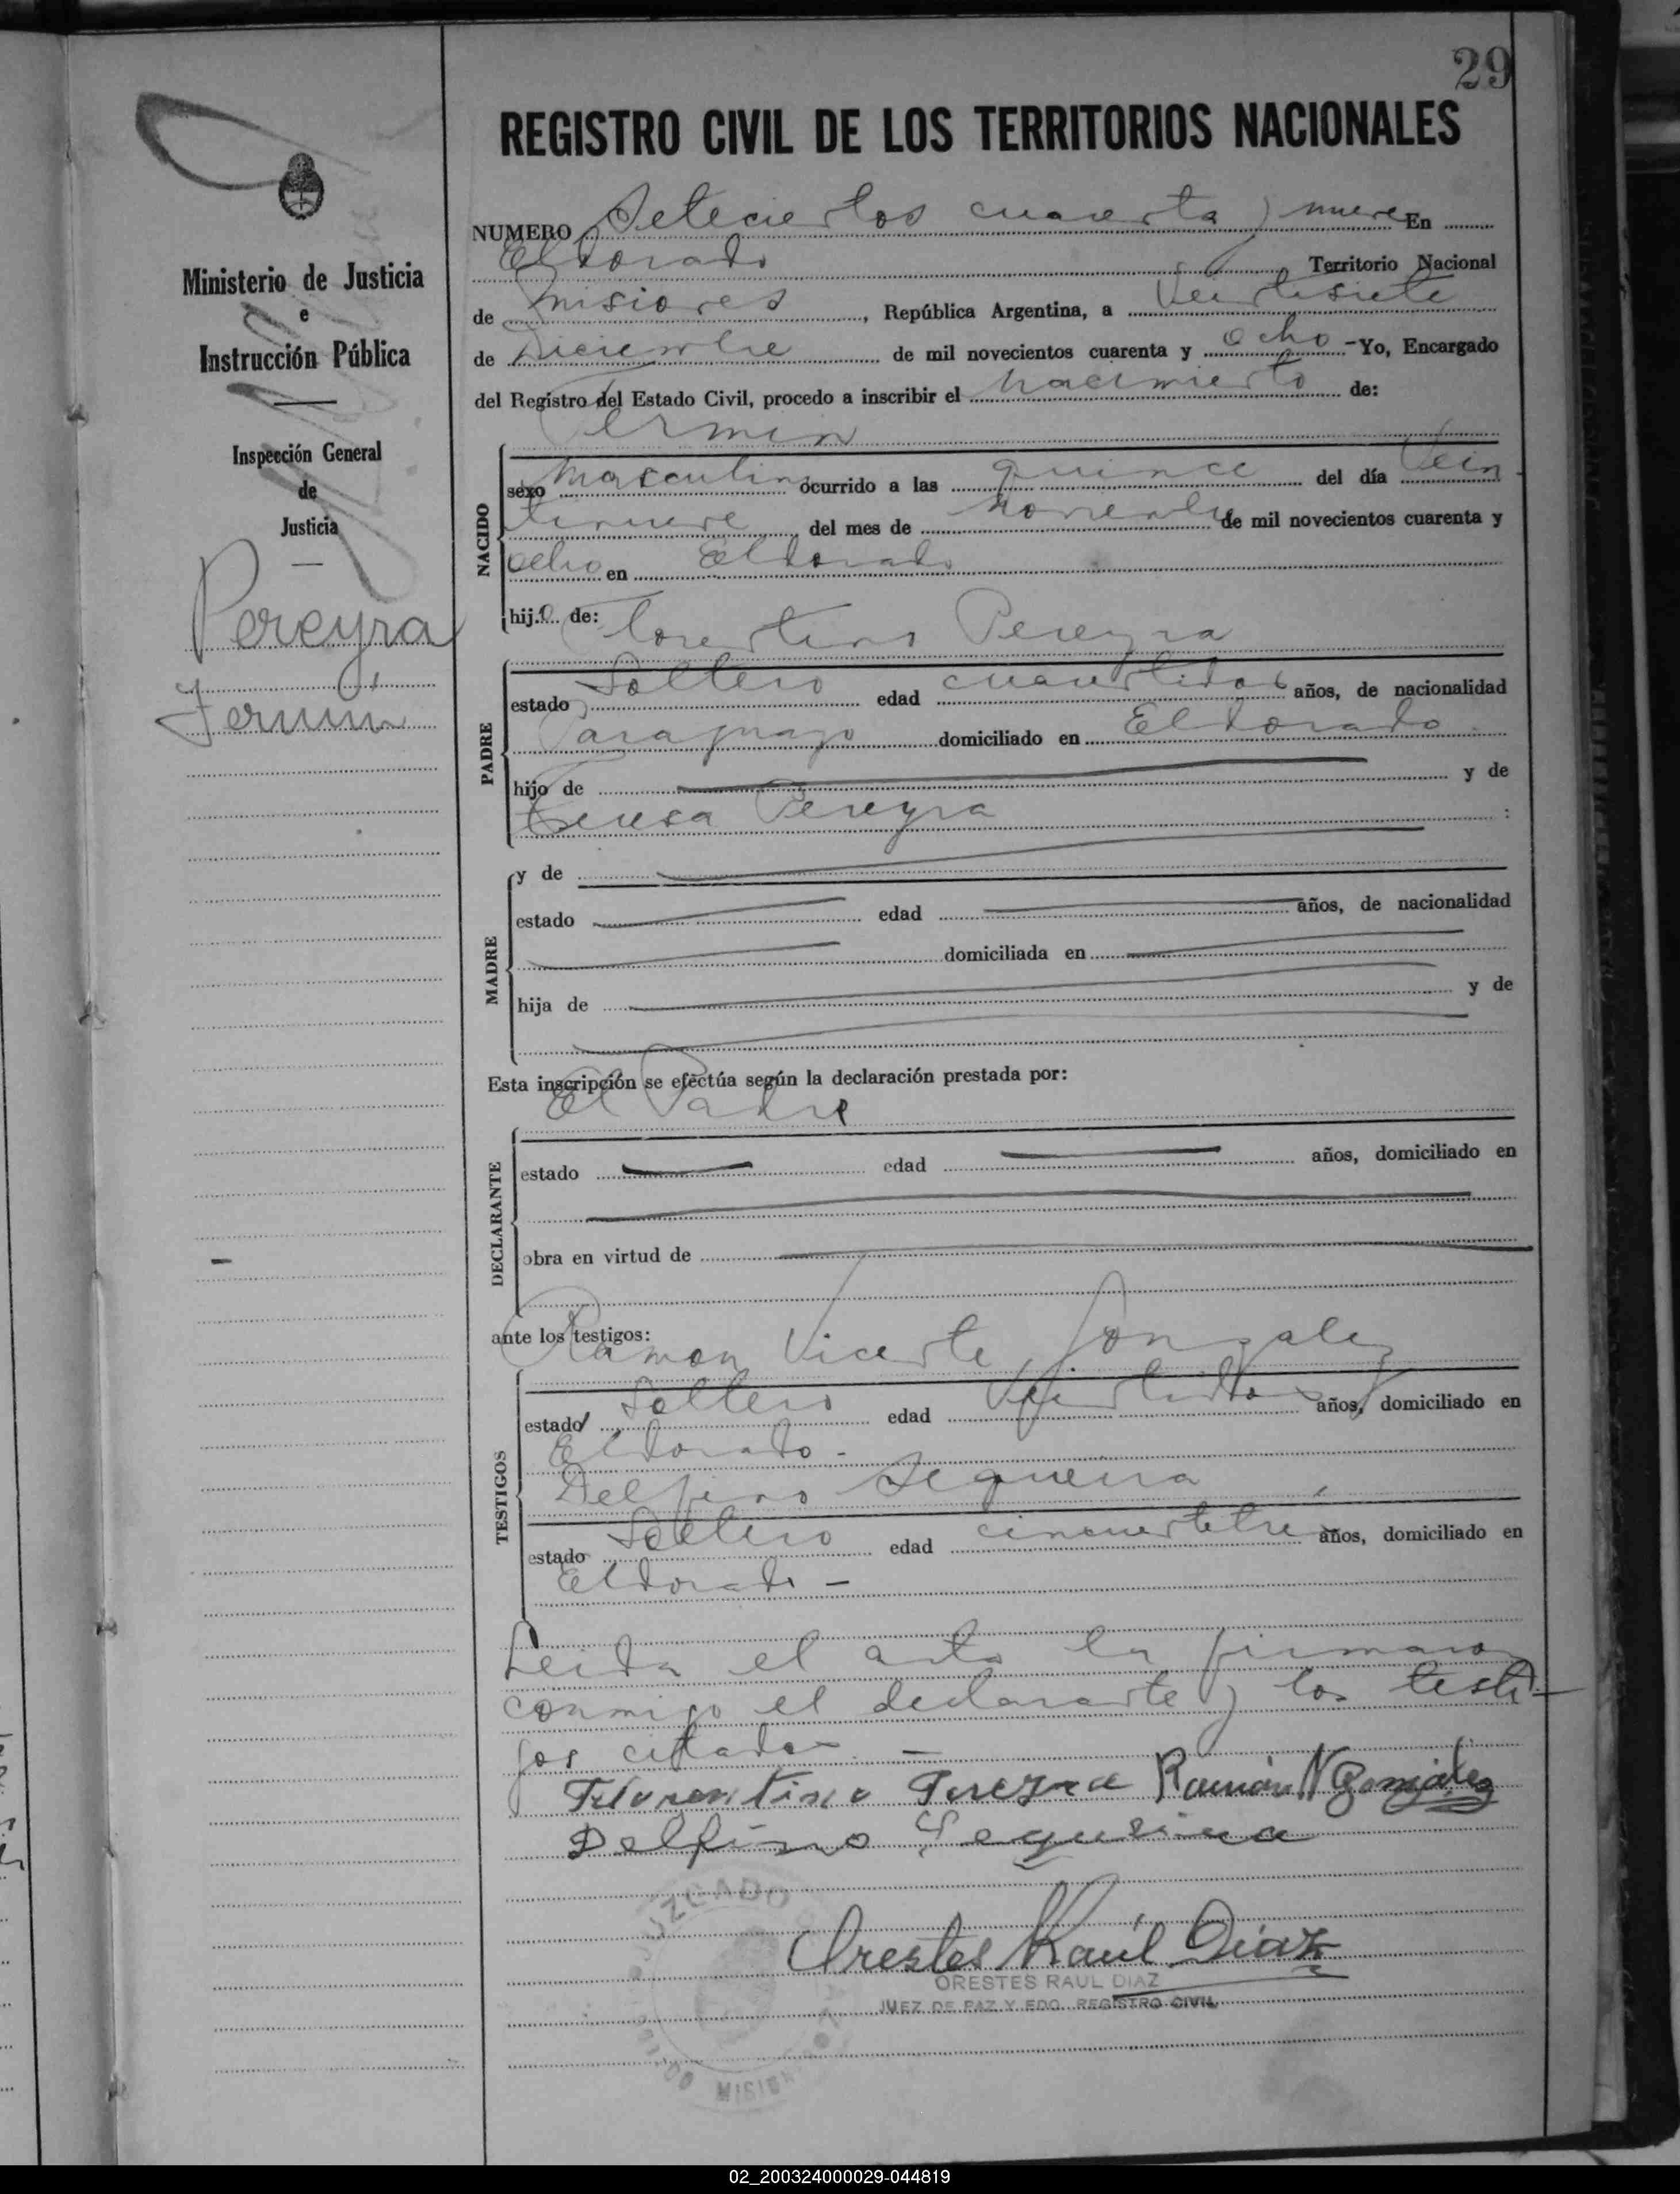 29
REGISTRO CIVIL DE LOS TERRITORIOS NACIONALES
Ministerio de Justicia
e
Instrucción Pública
Inspección General
de
Justicia
Pereyra
Fermin
NUMERO Setecientos cuarenta y nueve En
Eldorado Territorio Nacional
de Misiones, República Argentina, a Veintisiete
de Diciembre de mil novecientos cuarenta y ocho - Yo, Encargado
del Registro del Estado Civil, procedo a inscribir el nacimiento de:
Fermin
NACIDO
sexo Masculino ocurrido a las quince del día Vein
tinueve del mes de Noviembre de mil novecientos cuarenta y
ocho en Eldorado
hij.o de: Florentino Pereyra
PADRE
estado Soltero edad cuarentidos años, de nacionalidad
Paraguayo domiciliado en Eldorado
hijo de y de
Teresa Pereyra
MADRE
y de
estado edad años, de nacionalidad
domiciliada en
hija de y de
Esta inscripción se efectúa según la declaración prestada por:
El Padre
DECLARANTE
estado edad años, domiciliado en
obra en virtud de
ante los testigos: Ramon Vicente Gonzalez
TESTIGOS
estado Soltero edad Veintidos años, domiciliado en
Eldorado -
Delfino Sequeira
estado Soltero edad cincuentitres años, domiciliado en
Eldorado -
Leida el acta la firmaron
conmigo el declarante y los testi-
gos citados. -
Florentino Pereyra Ramón V Gonzalez
Delfino Sequeira
JUZGADO
Orestes Raúl Díaz
ORESTES RAUL DIAZ
JUEZ DE PAZ Y EDO. REGISTRO CIVIL
02_200324000029-044819